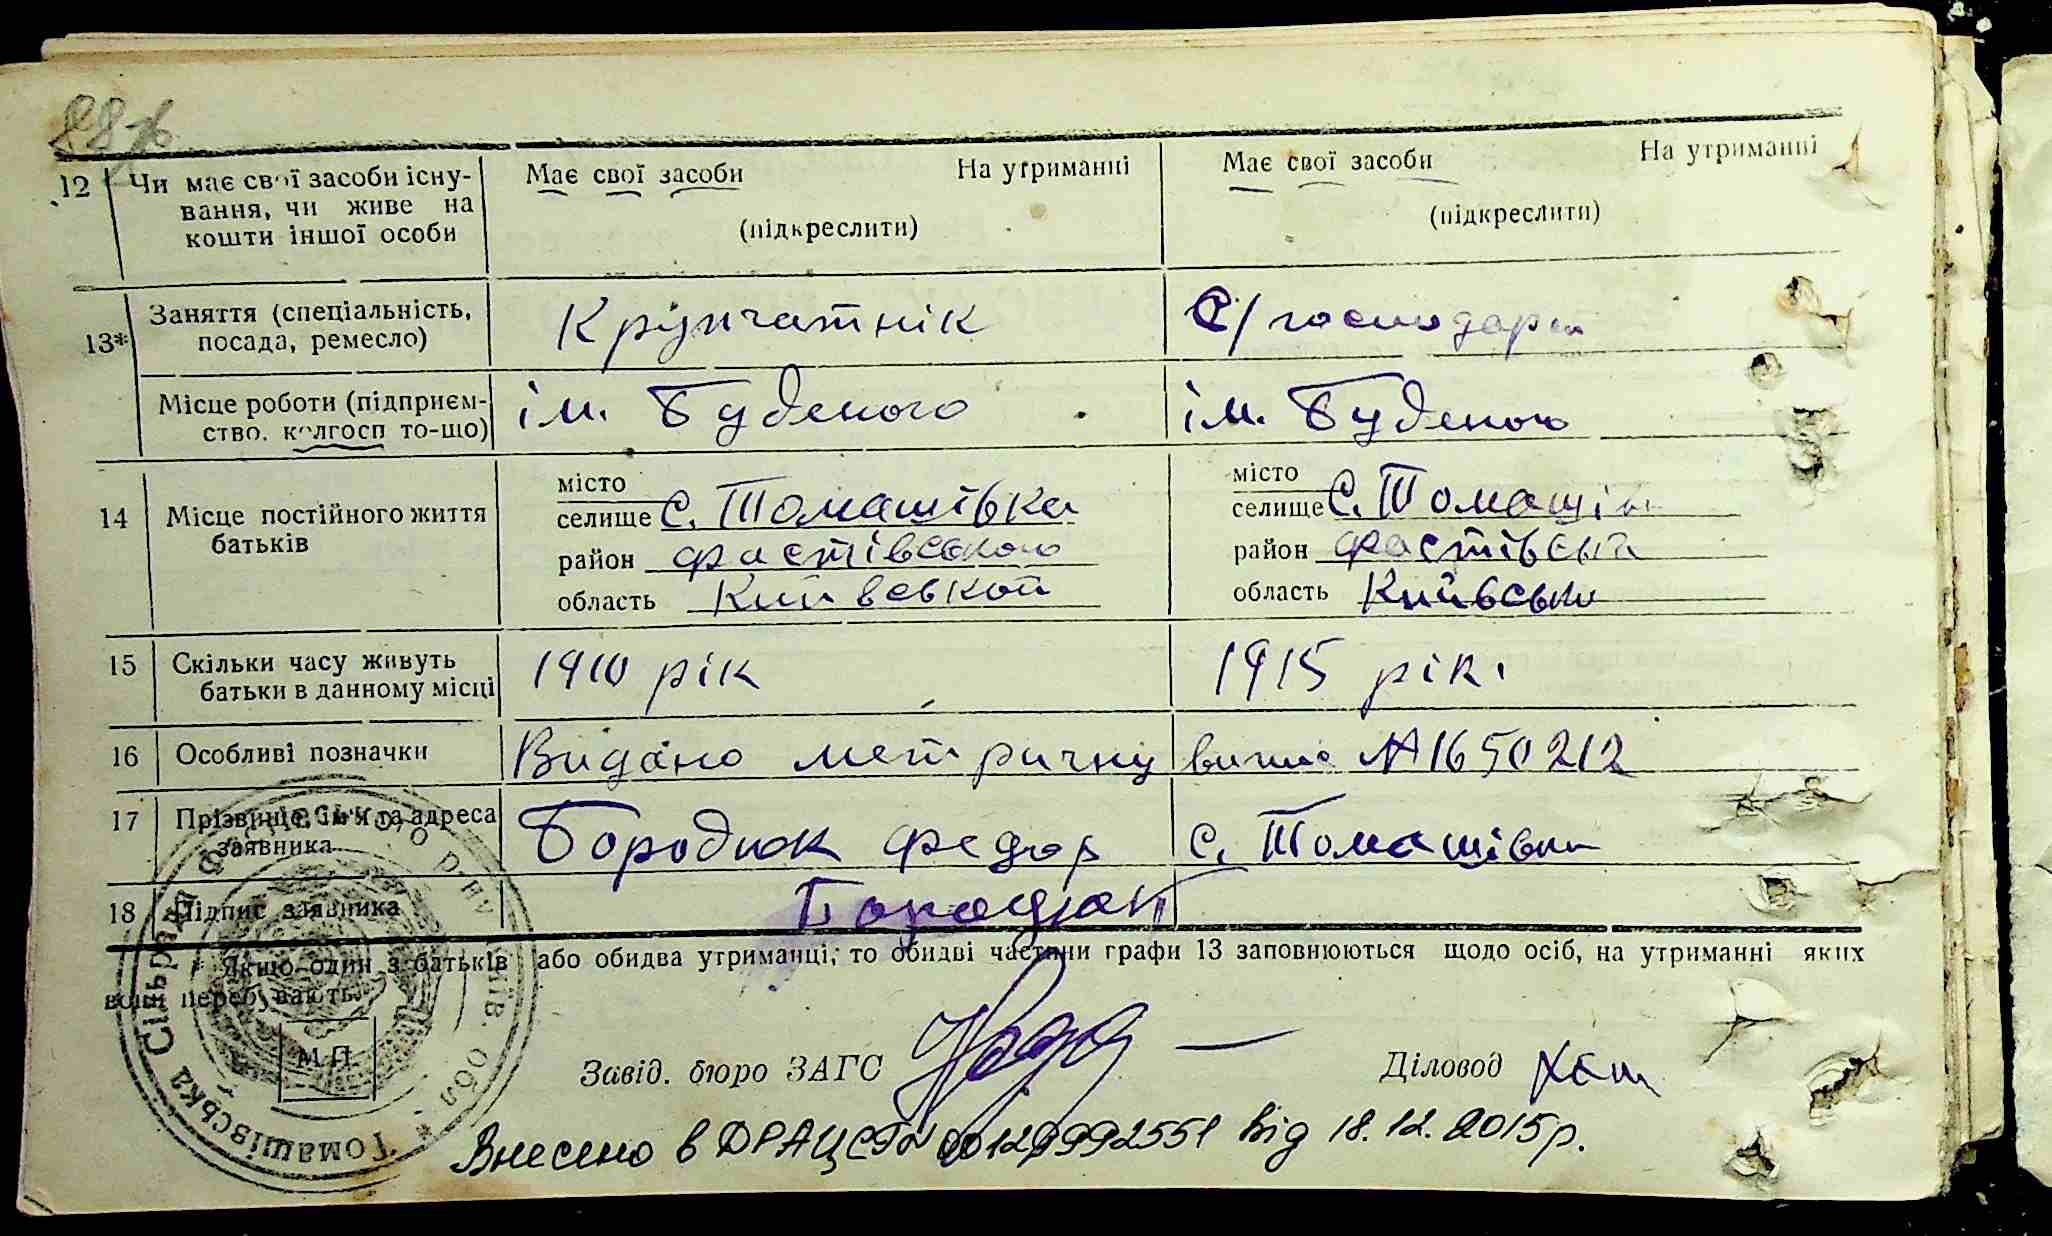 88
12 Чи має свої засоби існу- Має свої засоби На утриманні Має свої засоби На утриманні
вання, чи живе на (підкреслити) (підкреслити)
кошти іншої особи
13* Заняття (спеціальність, Крупчатнік С/господарст
посада, ремесло)
Місце роботи (підприєм- ім. Буденого ім. Буденого
ство, колгосп то-що)
місто місто
14 Місце постійного життя селище с. Томашівка селище с. Томашівк
батьків район фастівського район фастівськ
область Київськой область Київсько
15 Скільки часу живуть 1910 рік 1915 рік
батьки в данному місці
16 Особливі позначки Видано метричну випис № 1650212
17 Прізвище, ім'я та адреса Бородюк Федор с. Томашівка
заявника
18 Підпис заявника Бородюк
* Якщо один з батьків або обидва утриманці, то обидві частини графи 13 заповнюються щодо осіб, на утриманні яких
вони перебувають.
М.П.
Завід. бюро ЗАГС Діловод
Томашівська Сільрада Фастівського р-ну Київ. обл.
Внесено в ДРАЦСГ № 00129992551 від 18.12.2015р.